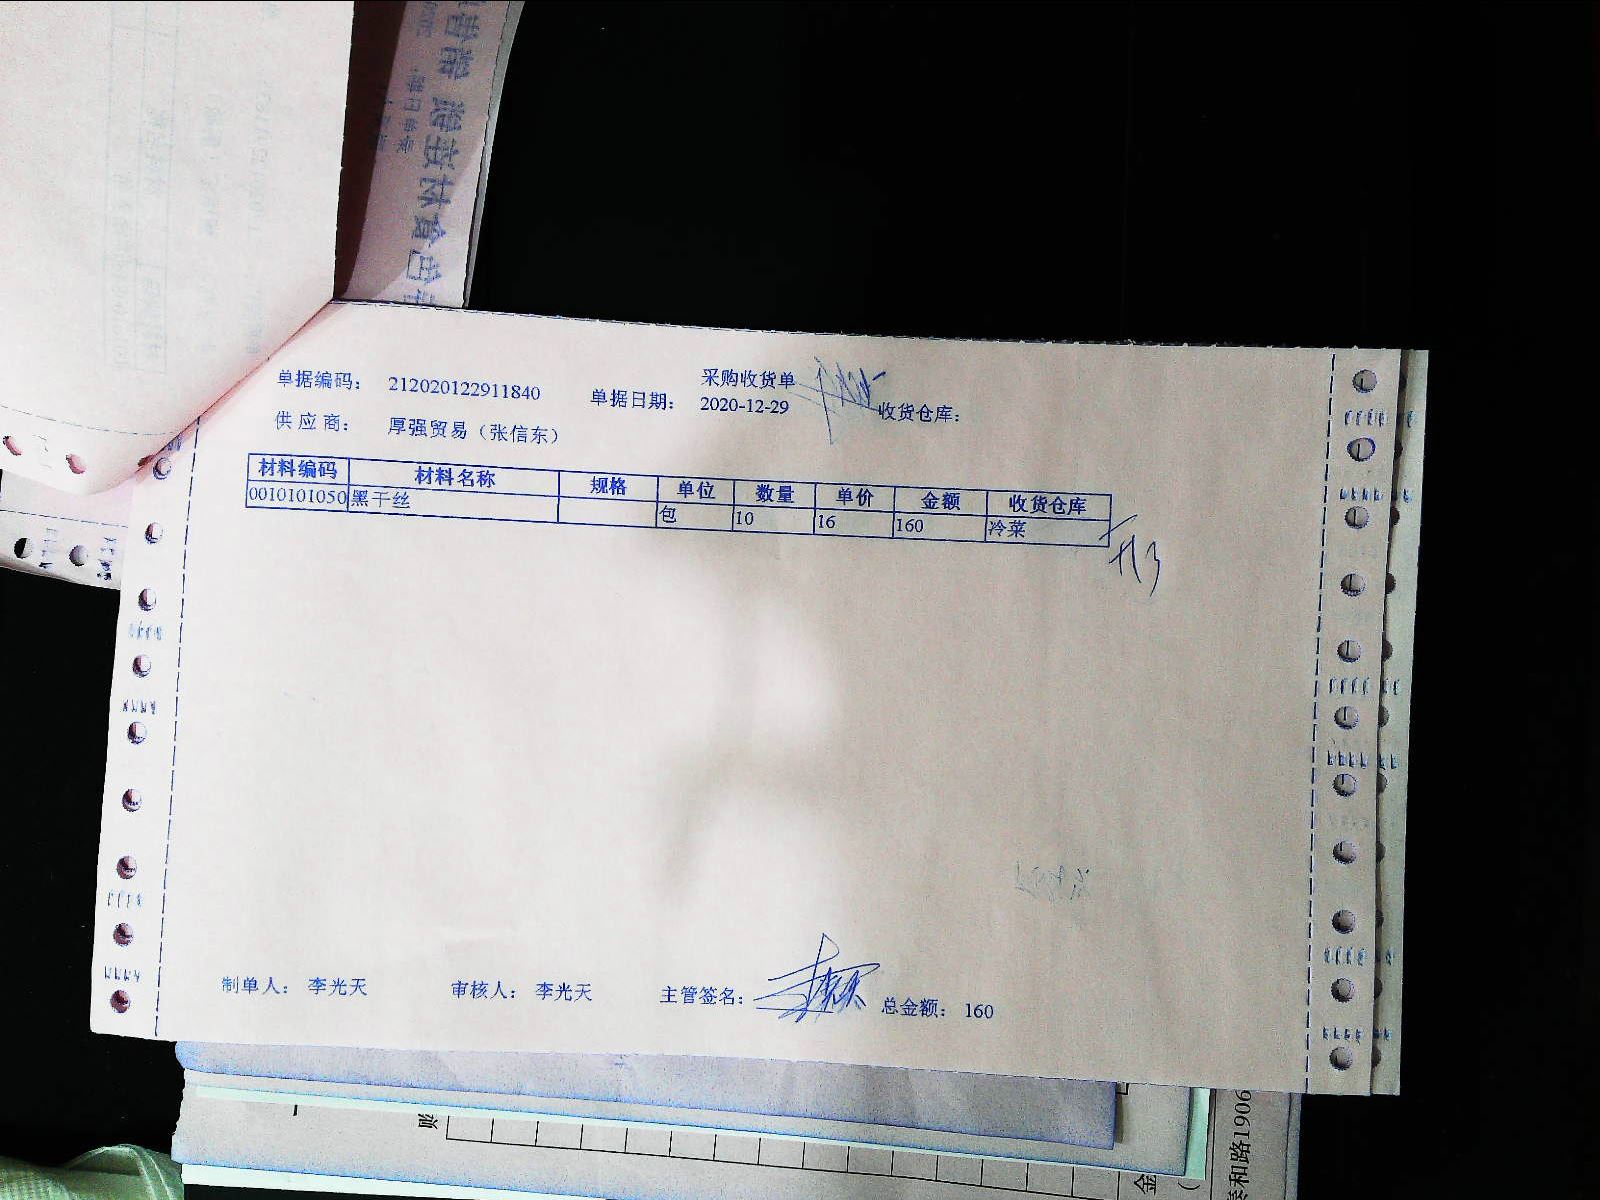 采购收货单
单据编码： 212020122911840 单据日期： 2020-12-29 收货仓库：
供应商： 厚强贸易（张信东）
材料编码 材料名称 规格 单位 数量 单价 金额 收货仓库
0010101050 黑干丝 包 10 16 160 冷菜
制单人： 李光天 审核人： 李光天 主管签名： 总金额： 160
金
泰和路1906